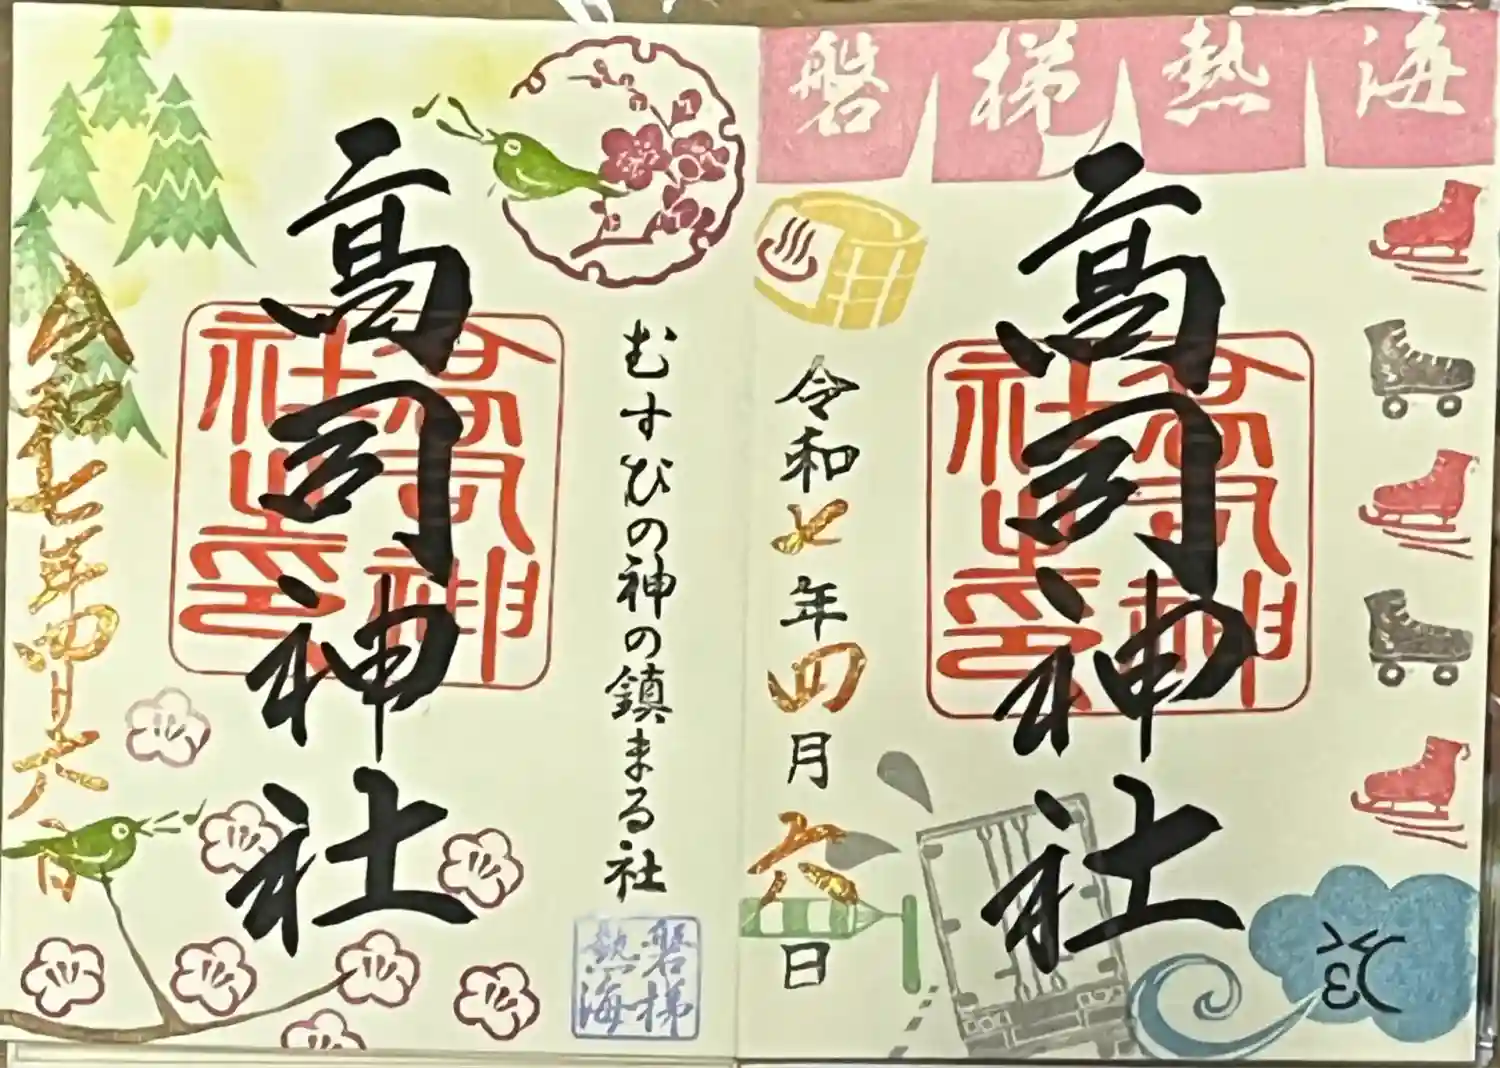 磐梯熱海
高司神社
令和七年四月六日
むすびの神の鎮まる社
磐梯
熱海
高司神社
令和七年四月六日